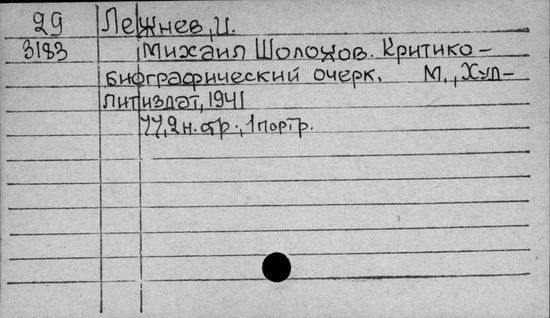 29 Лежнев, И.
3183 Михаил Шолохов. Критико-
биографический очерк. М., Худ-
литиздат, 1941
77, 2 н. стр., 1 портр.